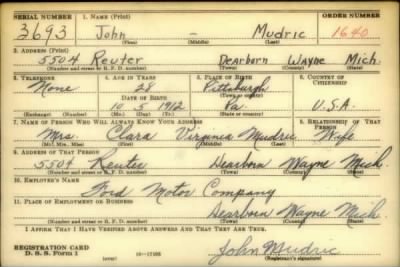 SERIAL NUMBER 1. NAME (Print) ORDER NUMBER
3693 John - Mudric 1640
(First) (Middle) (Last)
2. ADDRESS (Print)
5504 Reuter Dearborn Wayne Mich.
(Number and street or R. F. D. number) (Town) (County) (State)
3. TELEPHONE 4. AGE IN YEARS 5. PLACE OF BIRTH 6. COUNTRY OF CITIZENSHIP
None 28 Pittsburgh
DATE OF BIRTH (Town or county)
10 5 1912 Pa. U.S.A.
(Exchange) (Number) (Mo.) (Day) (Yr.) (State or country)
7. NAME OF PERSON WHO WILL ALWAYS KNOW YOUR ADDRESS 8. RELATIONSHIP OF THAT PERSON
Mrs. Clara Virginia Mudric Wife
(Mr., Mrs., Miss) (First) (Middle) (Last)
9. ADDRESS OF THAT PERSON
5504 Reuter Dearborn Wayne Mich.
(Number and street or R. F. D. number) (Town) (County) (State)
10. EMPLOYER'S NAME
Ford Motor Company
11. PLACE OF EMPLOYMENT OR BUSINESS
Dearborn Wayne Mich.
(Number and street or R. F. D. number) (Town) (County) (State)
I AFFIRM THAT I HAVE VERIFIED ABOVE ANSWERS AND THAT THEY ARE TRUE.
REGISTRATION CARD
D. S. S. Form 1 (over) John Mudric
(Registrant's signature)